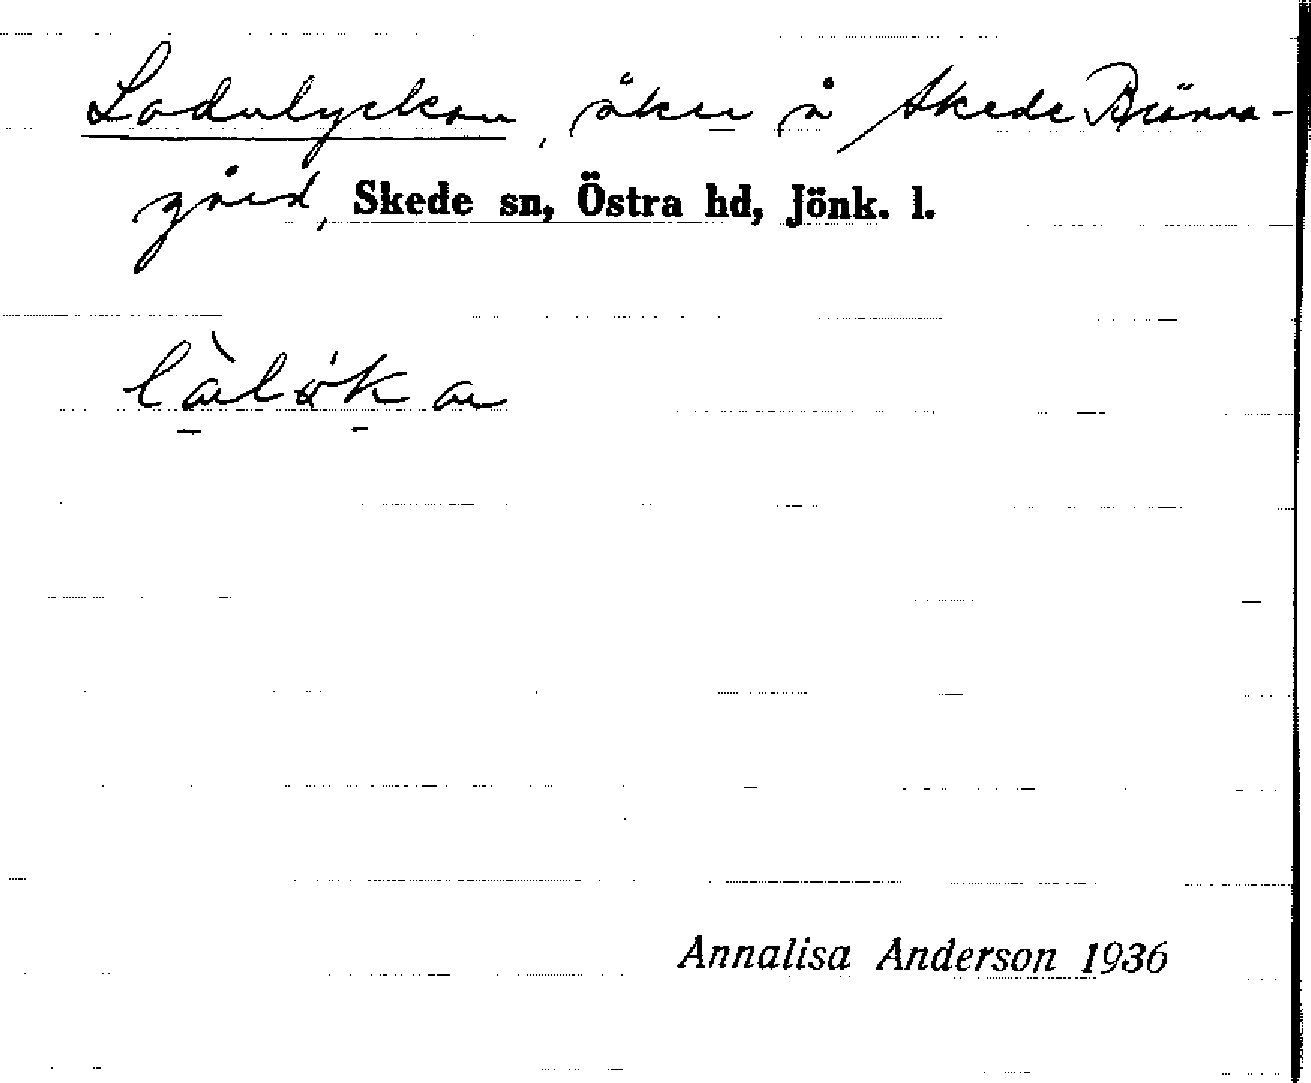 Ladulyckan, åker å Skede Bränna-
gård, Skede sn, Östra hd, Jönk. l.
Annalisa Anderson 1936